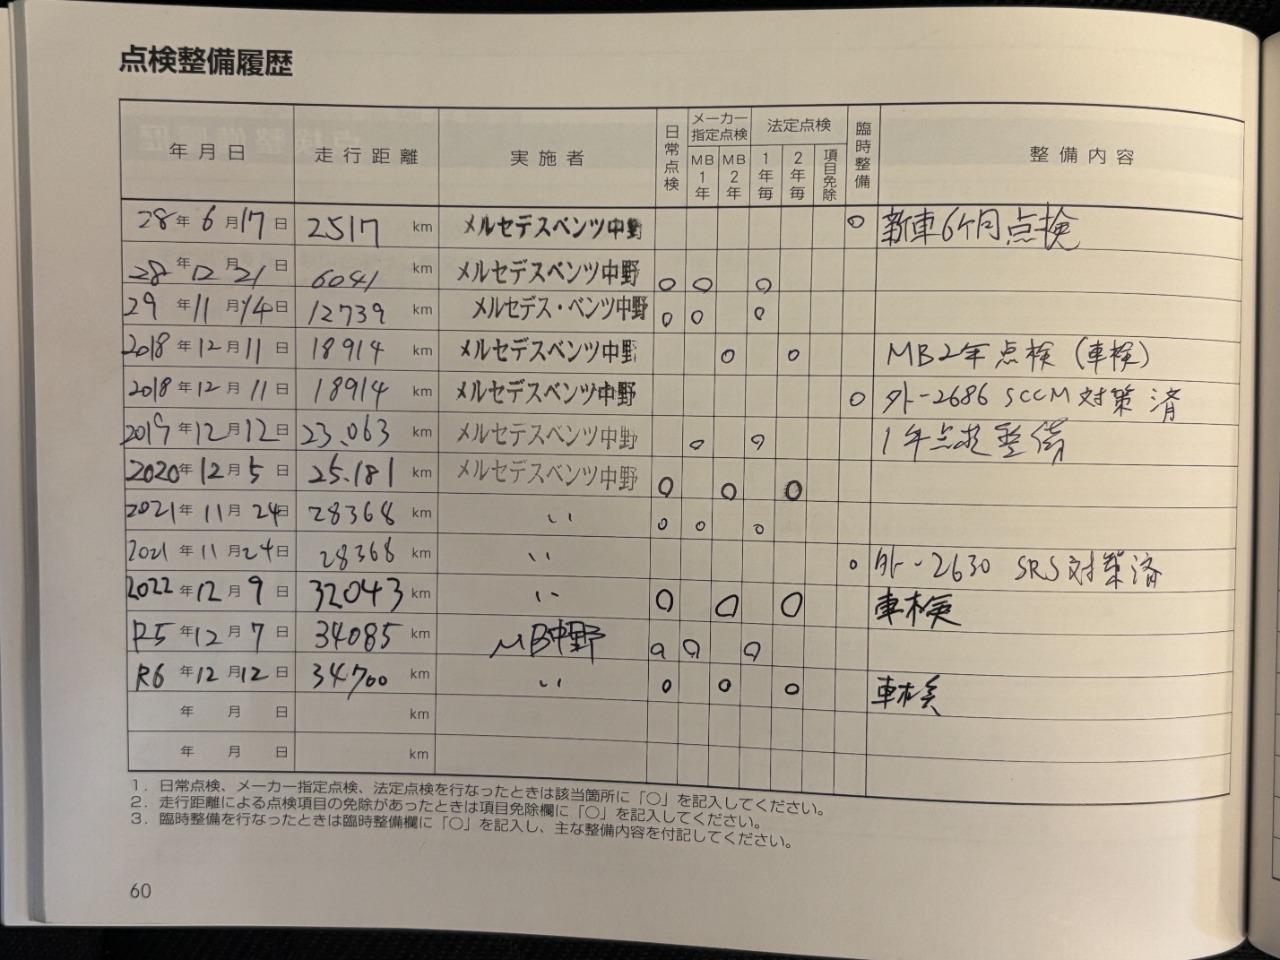 点検整備履歴
年月日 走行距離 実施者 日常点検 メーカー指定点検 MB1年 MB2年 法定点検 1年毎 2年毎 項目免除 臨時整備 整備内容
28年6月17日 2517 km メルセデスベンツ中野 ○ 新車6ケ月点検
28年12月21日 6041 km メルセデスベンツ中野 ○ ○ ○
29年11月14日 12739 km メルセデス・ベンツ中野 ○ ○ ○
2018年12月11日 18914 km メルセデスベンツ中野 ○ ○ MB2年点検(車検)
2018年12月11日 18914 km メルセデスベンツ中野 ○ 外-2686 SCCM対策済
2019年12月12日 23.063 km メルセデスベンツ中野 ○ ○ 1年点検整備
2020年12月5日 25.181 km メルセデスベンツ中野 ○ ○ ○
2021年11月24日 28368 km 〃 ○ ○ ○
2021年11月24日 28368 km 〃 ○ 外-2630 SRS対策済
2022年12月9日 32043 km 〃 ○ ○ ○ 車検
R5年12月7日 34085 km MB中野 ○ ○ ○
R6年12月12日 34700 km 〃 ○ ○ ○ 車検
年 月 日 km
年 月 日 km
1. 日常点検、メーカー指定点検、法定点検を行なったときは該当箇所に「○」を記入してください。
2. 走行距離による点検項目の免除があったときは項目免除欄に「○」を記入してください。
3. 臨時整備を行なったときは臨時整備欄に「○」を記入し、主な整備内容を付記してください。
60